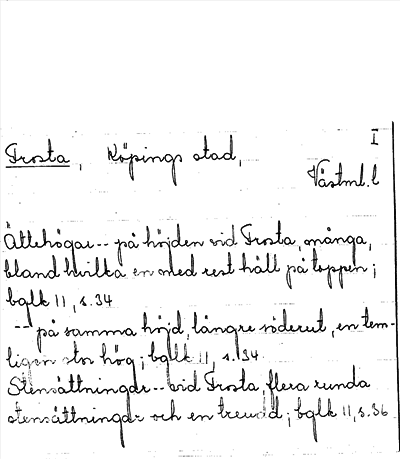 I
Frosta, Köpings stad,
Västml. l
Ättehögar -- på höjden vid Frosta, många,
bland hvilka en med rest häll på toppen;
bglk 11, s. 34
-- på samma höjd, längre söderut, en tem-
ligen stor hög; bglk 11, s. 34
Stensättningar -- vid Frosta, flera runda
stensättningar och en treudd; bglk 11, s. 36